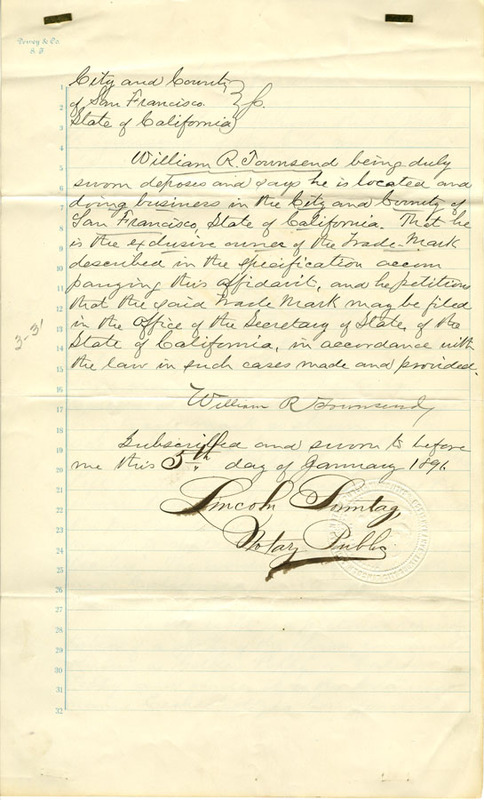 City and County
of San Francisco } ss.
State of California
William R. Townsend being duly
sworn deposes and says he is located and
doing business in the City and County of
San Francisco, State of California. That he
is the exclusive owner of the Trade-Mark
described in the specification accom
panying this affidavit, and he petitions
that the said Trade Mark may be filed
in the office of the Secretary of State, of the
State of California, in accordance with
the law in such cases made and provided.
William R Townsend
Subscribed and sworn to before
me this 5th day of January 1891.
Lincoln Sonntag,
Notary Public
3-31
1
2
3
4
5
6
7
8
9
10
11
12
13
14
15
16
17
18
19
20
21
22
23
24
25
26
27
28
29
30
31
32